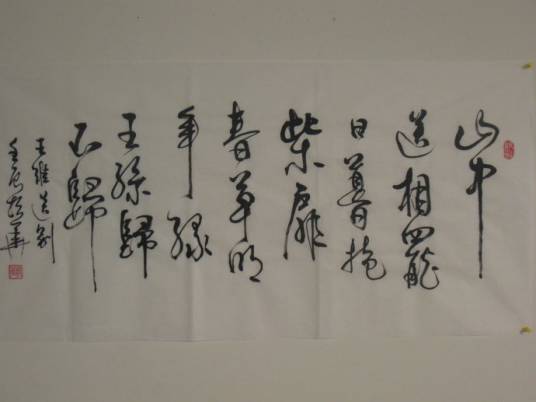 山中
送相罷
日暮掩
柴扉
春草明
年綠
王孫歸
不歸
王維送別
壬辰